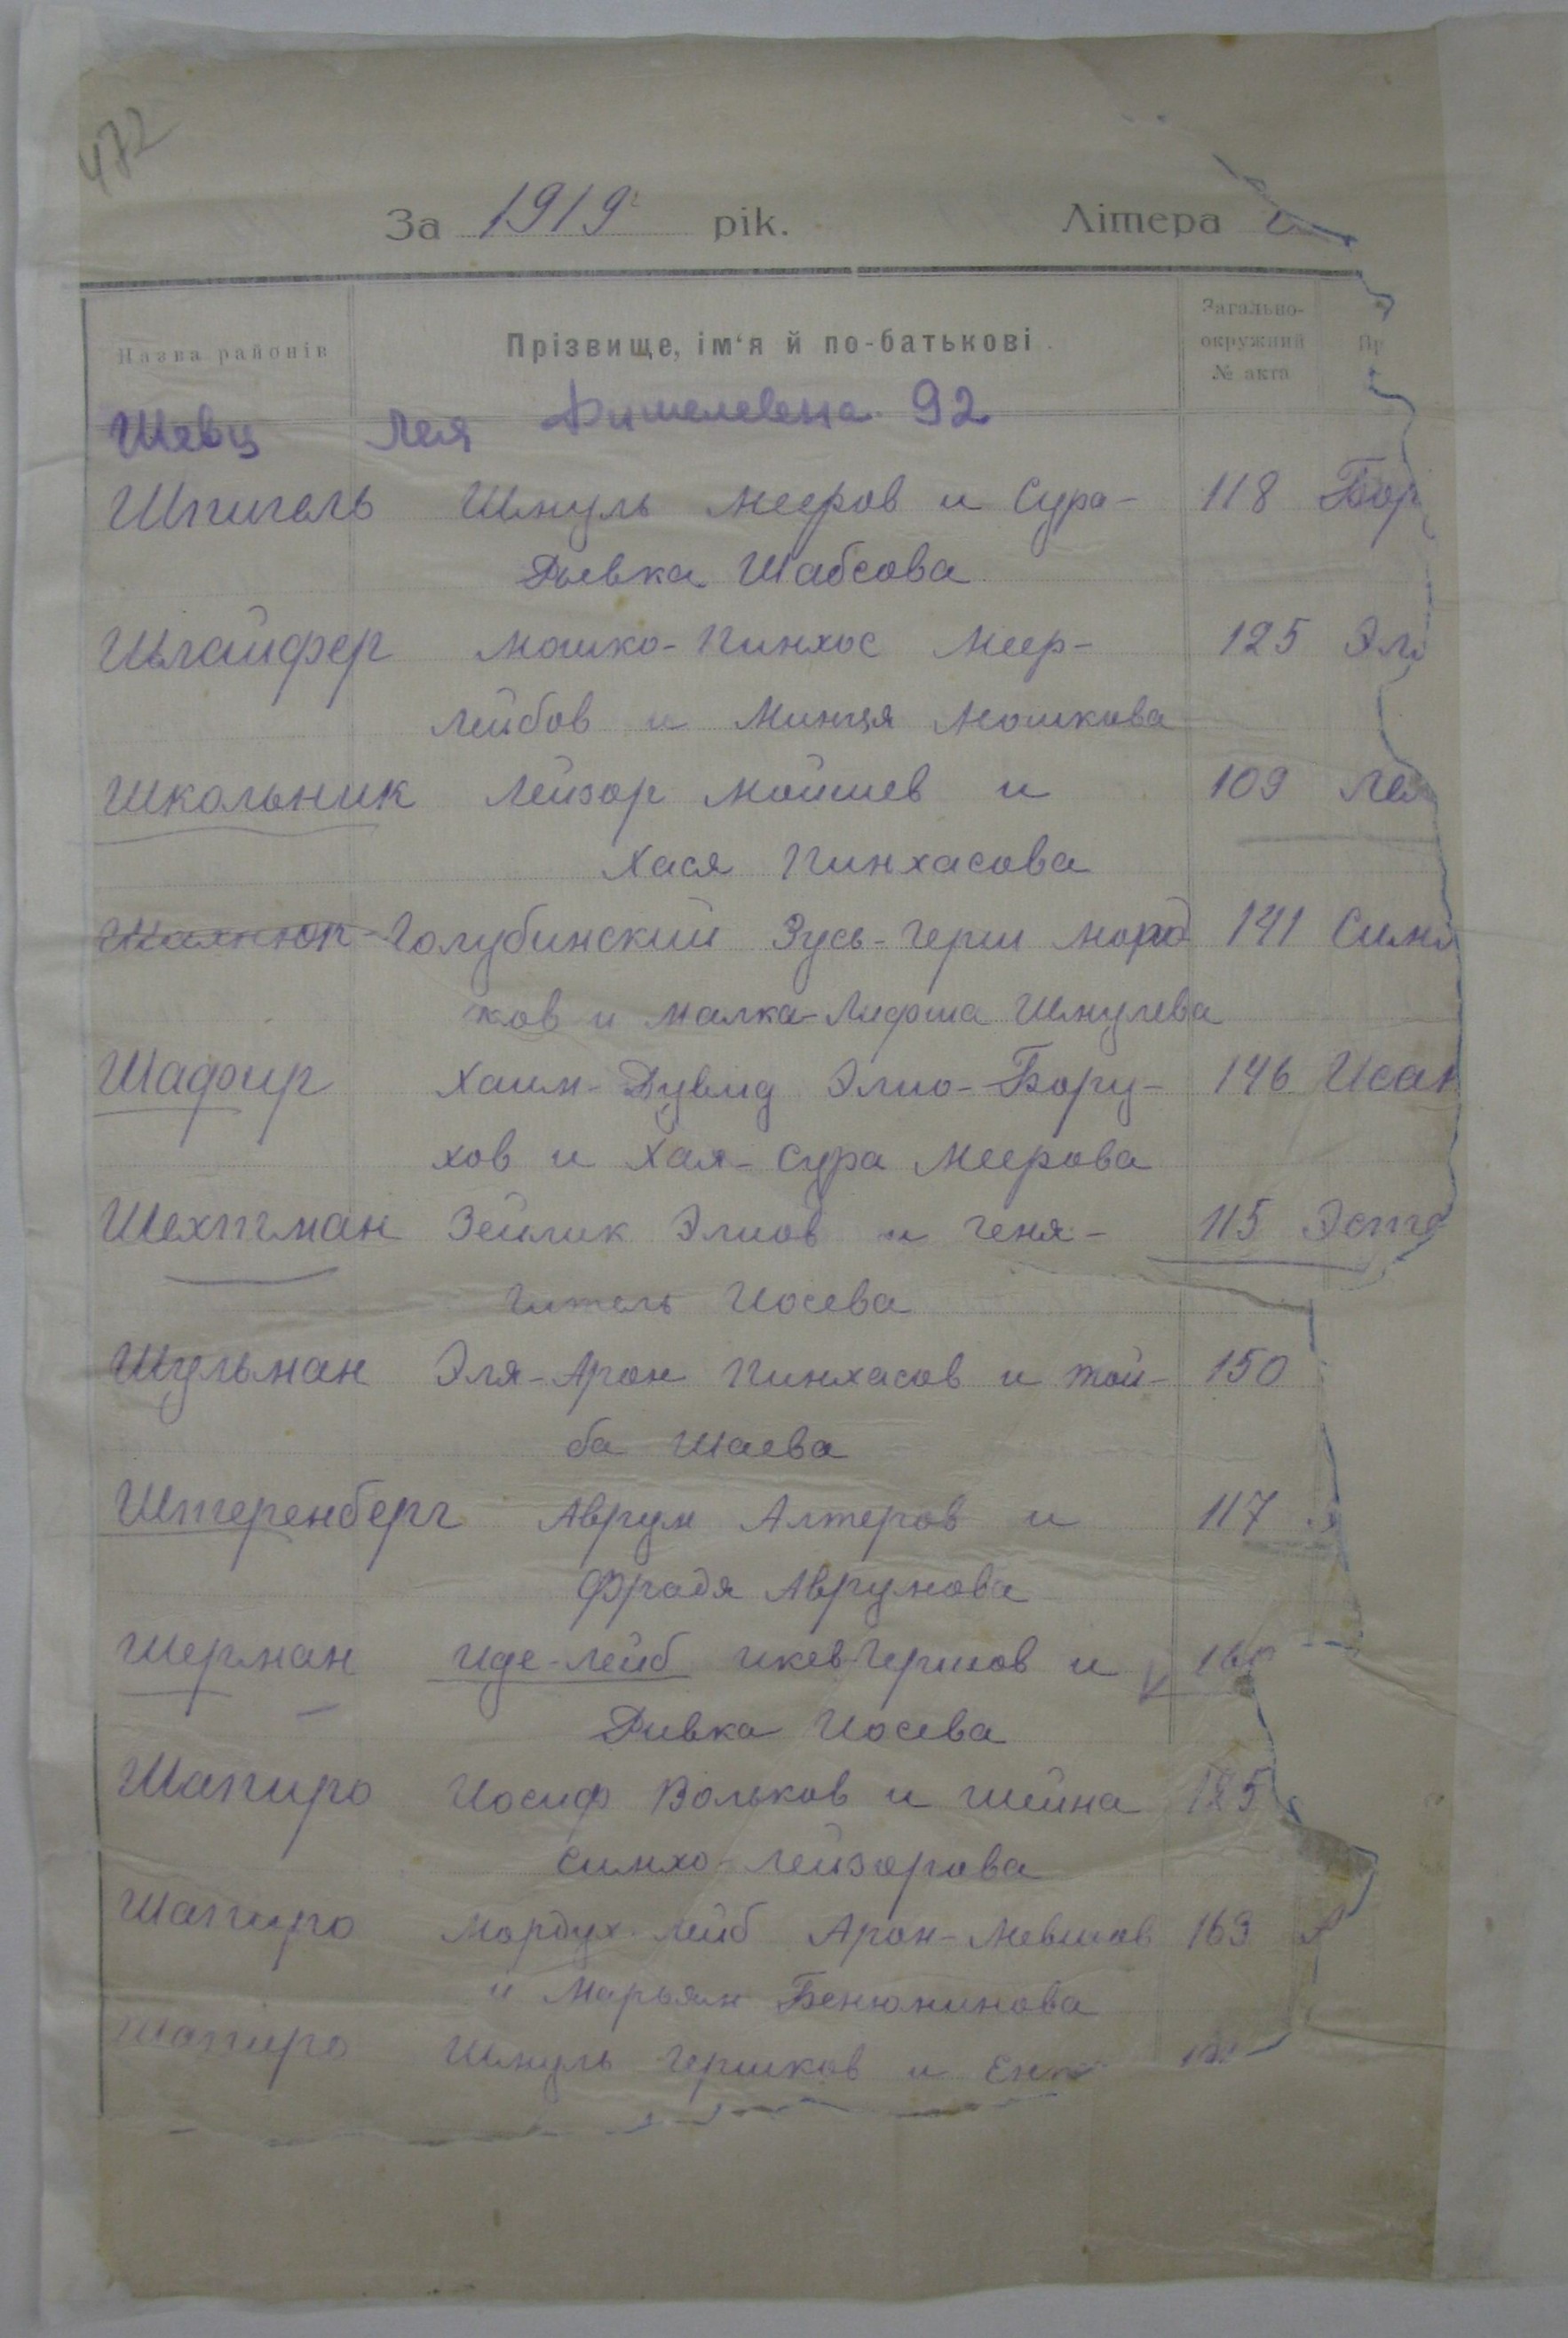 472
За 1919 г рік. Літера
Назва районів Прізвище, ім'я й по-батькові Загально-окружний № акта Пр
Шевц Лея Фишелевена 92
Шпигель Шмуль Мееров и Сура- 118 Бор
Рывка Шабсова
Шлайфер Мошко-Пинхос Меер- 125 Эл
Лейбов и Минця Мошкова
Школьник Лейзор Мойшев и 109 Лея
Хася Пинхасова
Голубинский Зусь-Герш Морд 141 Симх
ков и Малка-Лифша Шмулева
Шафир Хаим-Дувид Элио-Бору- 146 Исак
хов и Хая-Сура Меерова
Шехтман Зейлик Элиов и Геня- 115 Эсте
Гитель Иосева
Шульман Эля-Арон Пинхасов и Той- 150
ба Шаева
Штеренберг Аврум Алтеров и 117
Фрадя Аврумова
Шерман Иде-Лейб Гершов и 160
Ривка Иосева
Шапиро Иосиф Вольков и Шейна 185
Симхо-Лейзорова
Шапиро Мордух-Лейб Арон-Мевшов 163
и Марьям Бенюминова
Шапиро Шмуль Гершков и